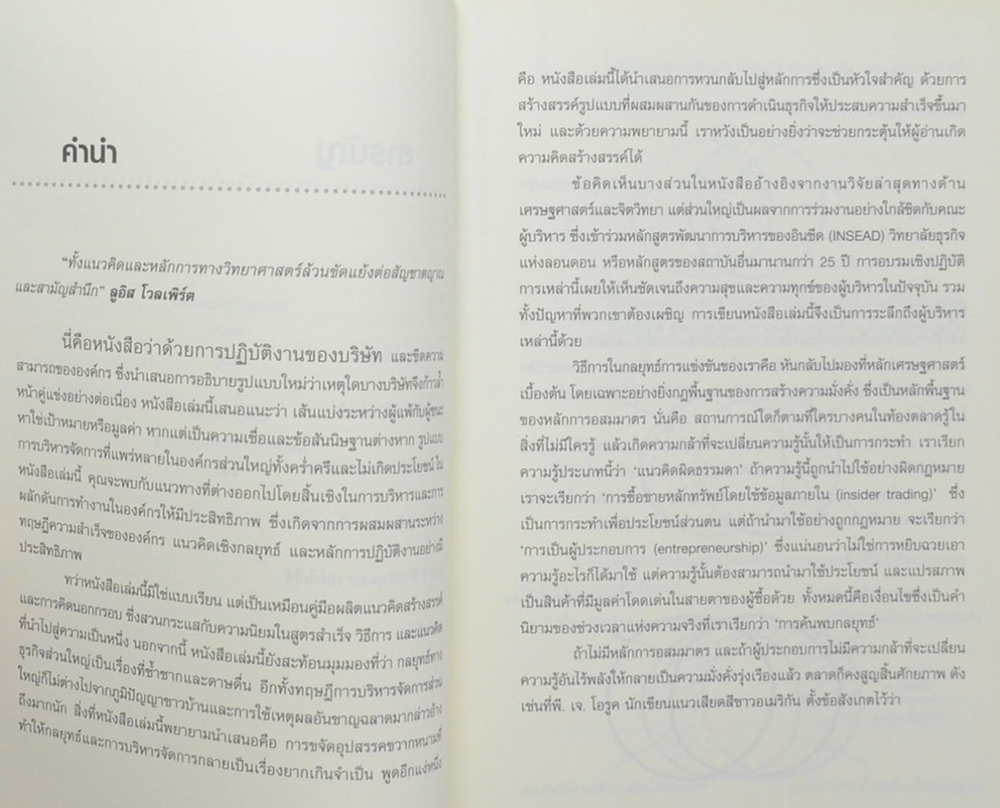 คำนำ
"ทั้งแนวคิดและหลักการทางวิทยาศาสตร์ล้วนขัดแย้งต่อสัญชาตญาณ
และสามัญสำนึก" ลูอิส โวลเพิร์ต
นี่คือหนังสือว่าด้วยการปฏิบัติงานของบริษัท และขีดความ
สามารถขององค์กร ซึ่งนำเสนอการอธิบายรูปแบบใหม่ว่าเหตุใดบางบริษัทจึงก้าวล้ำ
หน้าคู่แข่งอย่างต่อเนื่อง หนังสือเล่มนี้เสนอแนะว่า เส้นแบ่งระหว่างผู้แพ้กับผู้ชนะ
หาใช่เป้าหมายหรือมูลค่า หากแต่เป็นความเชื่อและข้อสันนิษฐานต่างหาก รูปแบบ
การบริหารจัดการที่แพร่หลายในองค์กรส่วนใหญ่ทั้งคร่ำครึและไม่เกิดประโยชน์ ใน
หนังสือเล่มนี้ คุณจะพบกับแนวทางที่ต่างออกไปโดยสิ้นเชิงในการบริหารและการ
ผลักดันการทำงานในองค์กรให้มีประสิทธิภาพ ซึ่งเกิดจากการผสมผสานระหว่าง
ทฤษฎีความสำเร็จขององค์กร แนวคิดเชิงกลยุทธ์ และหลักการปฏิบัติงานอย่างมี
ประสิทธิภาพ
ทว่าหนังสือเล่มนี้มิใช่แบบเรียน แต่เป็นเหมือนคู่มือผลิตแนวคิดสร้างสรรค์
และการคิดนอกกรอบ ซึ่งสวนกระแสกับความนิยมในสูตรสำเร็จ วิธีการ และแนวคิด
ที่นำไปสู่ความเป็นหนึ่ง นอกจากนี้ หนังสือเล่มนี้ยังสะท้อนมุมมองที่ว่า กลยุทธ์ทาง
ธุรกิจส่วนใหญ่เป็นเรื่องที่ซ้ำซากและดาษดื่น อีกทั้งทฤษฎีการบริหารจัดการส่วน
ใหญ่ก็ไม่ต่างไปจากภูมิปัญญาชาวบ้านและการใช้เหตุผลอันชาญฉลาดมากล่าวอ้าง
ถึงมากนัก สิ่งที่หนังสือเล่มนี้พยายามนำเสนอคือ การขจัดอุปสรรคขวากหนามที่
ทำให้กลยุทธ์และการบริหารจัดการกลายเป็นเรื่องยากเกินจำเป็น พูดอีกแง่หนึ่ง
คือ หนังสือเล่มนี้ได้นำเสนอการหวนกลับไปสู่หลักการซึ่งเป็นหัวใจสำคัญ ด้วยการ
สร้างสรรค์รูปแบบที่ผสมผสานกันของการดำเนินธุรกิจให้ประสบความสำเร็จขึ้นมา
ใหม่ และด้วยความพยายามนี้ เราหวังเป็นอย่างยิ่งว่าจะช่วยกระตุ้นให้ผู้อ่านเกิด
ความคิดสร้างสรรค์ได้
ข้อคิดเห็นบางส่วนในหนังสืออ้างอิงจากงานวิจัยล่าสุดทางด้าน
เศรษฐศาสตร์และจิตวิทยา แต่ส่วนใหญ่เป็นผลจากการร่วมงานอย่างใกล้ชิดกับคณะ
ผู้บริหาร ซึ่งเข้าร่วมหลักสูตรพัฒนาการบริหารของอินซีด (INSEAD) วิทยาลัยธุรกิจ
แห่งลอนดอน หรือหลักสูตรของสถาบันอื่นมานานกว่า 25 ปี การอบรมเชิงปฏิบัติ
การเหล่านี้เผยให้เห็นชัดเจนถึงความสุขและความทุกข์ของผู้บริหารในปัจจุบัน รวม
ทั้งปัญหาที่พวกเขาต้องเผชิญ การเขียนหนังสือเล่มนี้จึงเป็นการระลึกถึงผู้บริหาร
เหล่านี้ด้วย
วิธีการในกลยุทธ์การแข่งขันของเราคือ หันกลับไปมองที่หลักเศรษฐศาสตร์
เบื้องต้น โดยเฉพาะอย่างยิ่งกฎพื้นฐานของการสร้างความมั่งคั่ง ซึ่งเป็นหลักพื้นฐาน
ของหลักการอสมมาตร นั่นคือ สถานการณ์ใดก็ตามที่ใครบางคนในท้องตลาดรู้ใน
สิ่งที่ไม่มีใครรู้ แล้วเกิดความกล้าที่จะเปลี่ยนความรู้นั้นให้เป็นการกระทำ เราเรียก
ความรู้ประเภทนี้ว่า 'แนวคิดผิดธรรมดา' ถ้าความรู้นี้ถูกนำไปใช้อย่างผิดกฎหมาย
เราจะเรียกว่า 'การซื้อขายหลักทรัพย์โดยใช้ข้อมูลภายใน (insider trading)' ซึ่ง
เป็นการกระทำเพื่อประโยชน์ส่วนตน แต่ถ้านำมาใช้อย่างถูกกฎหมาย จะเรียกว่า
'การเป็นผู้ประกอบการ (entrepreneurship)' ซึ่งแน่นอนว่าไม่ใช่การหยิบฉวยเอา
ความรู้อะไรก็ได้มาใช้ แต่ความรู้นั้นต้องสามารถนำมาใช้ประโยชน์ และแปรสภาพ
เป็นสินค้าที่มีมูลค่าโดดเด่นในสายตาของผู้ซื้อด้วย ทั้งหมดนี้คือเงื่อนไขซึ่งเป็นคำ
นิยามของช่วงเวลาแห่งความจริงที่เราเรียกว่า 'การค้นพบกลยุทธ์'
ถ้าไม่มีหลักการอสมมาตร และถ้าผู้ประกอบการไม่มีความกล้าที่จะเปลี่ยน
ความรู้อันไร้พลังให้กลายเป็นความมั่งคั่งรุ่งเรืองแล้ว ตลาดก็คงสูญสิ้นศักยภาพ ดัง
เช่นที่พี. เจ. โอรูค นักเขียนแนวเสียดสีชาวอเมริกัน ตั้งข้อสังเกตไว้ว่า